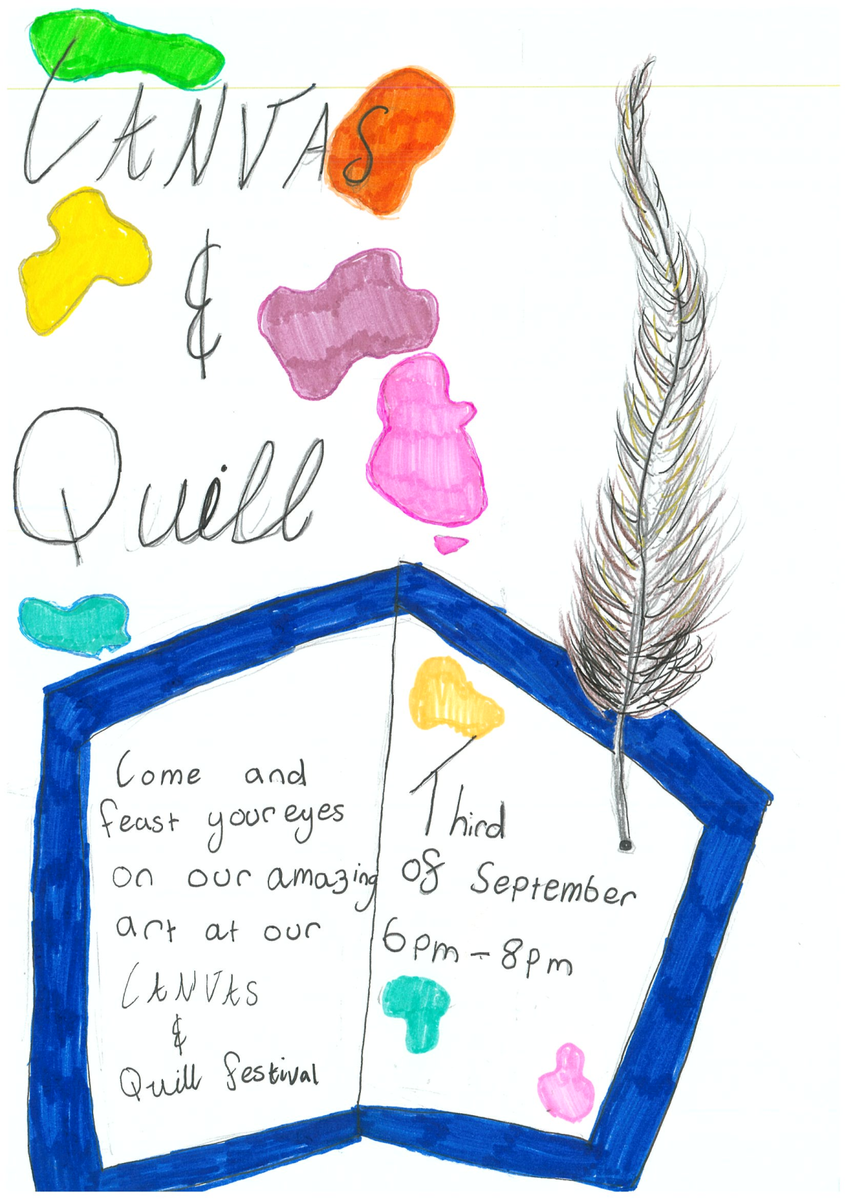 CANVAS
&
Quill
Come and
feast your eyes
on our amazing
art at our
CANVAS
&
Quill festival
Third
of September
6pm - 8pm